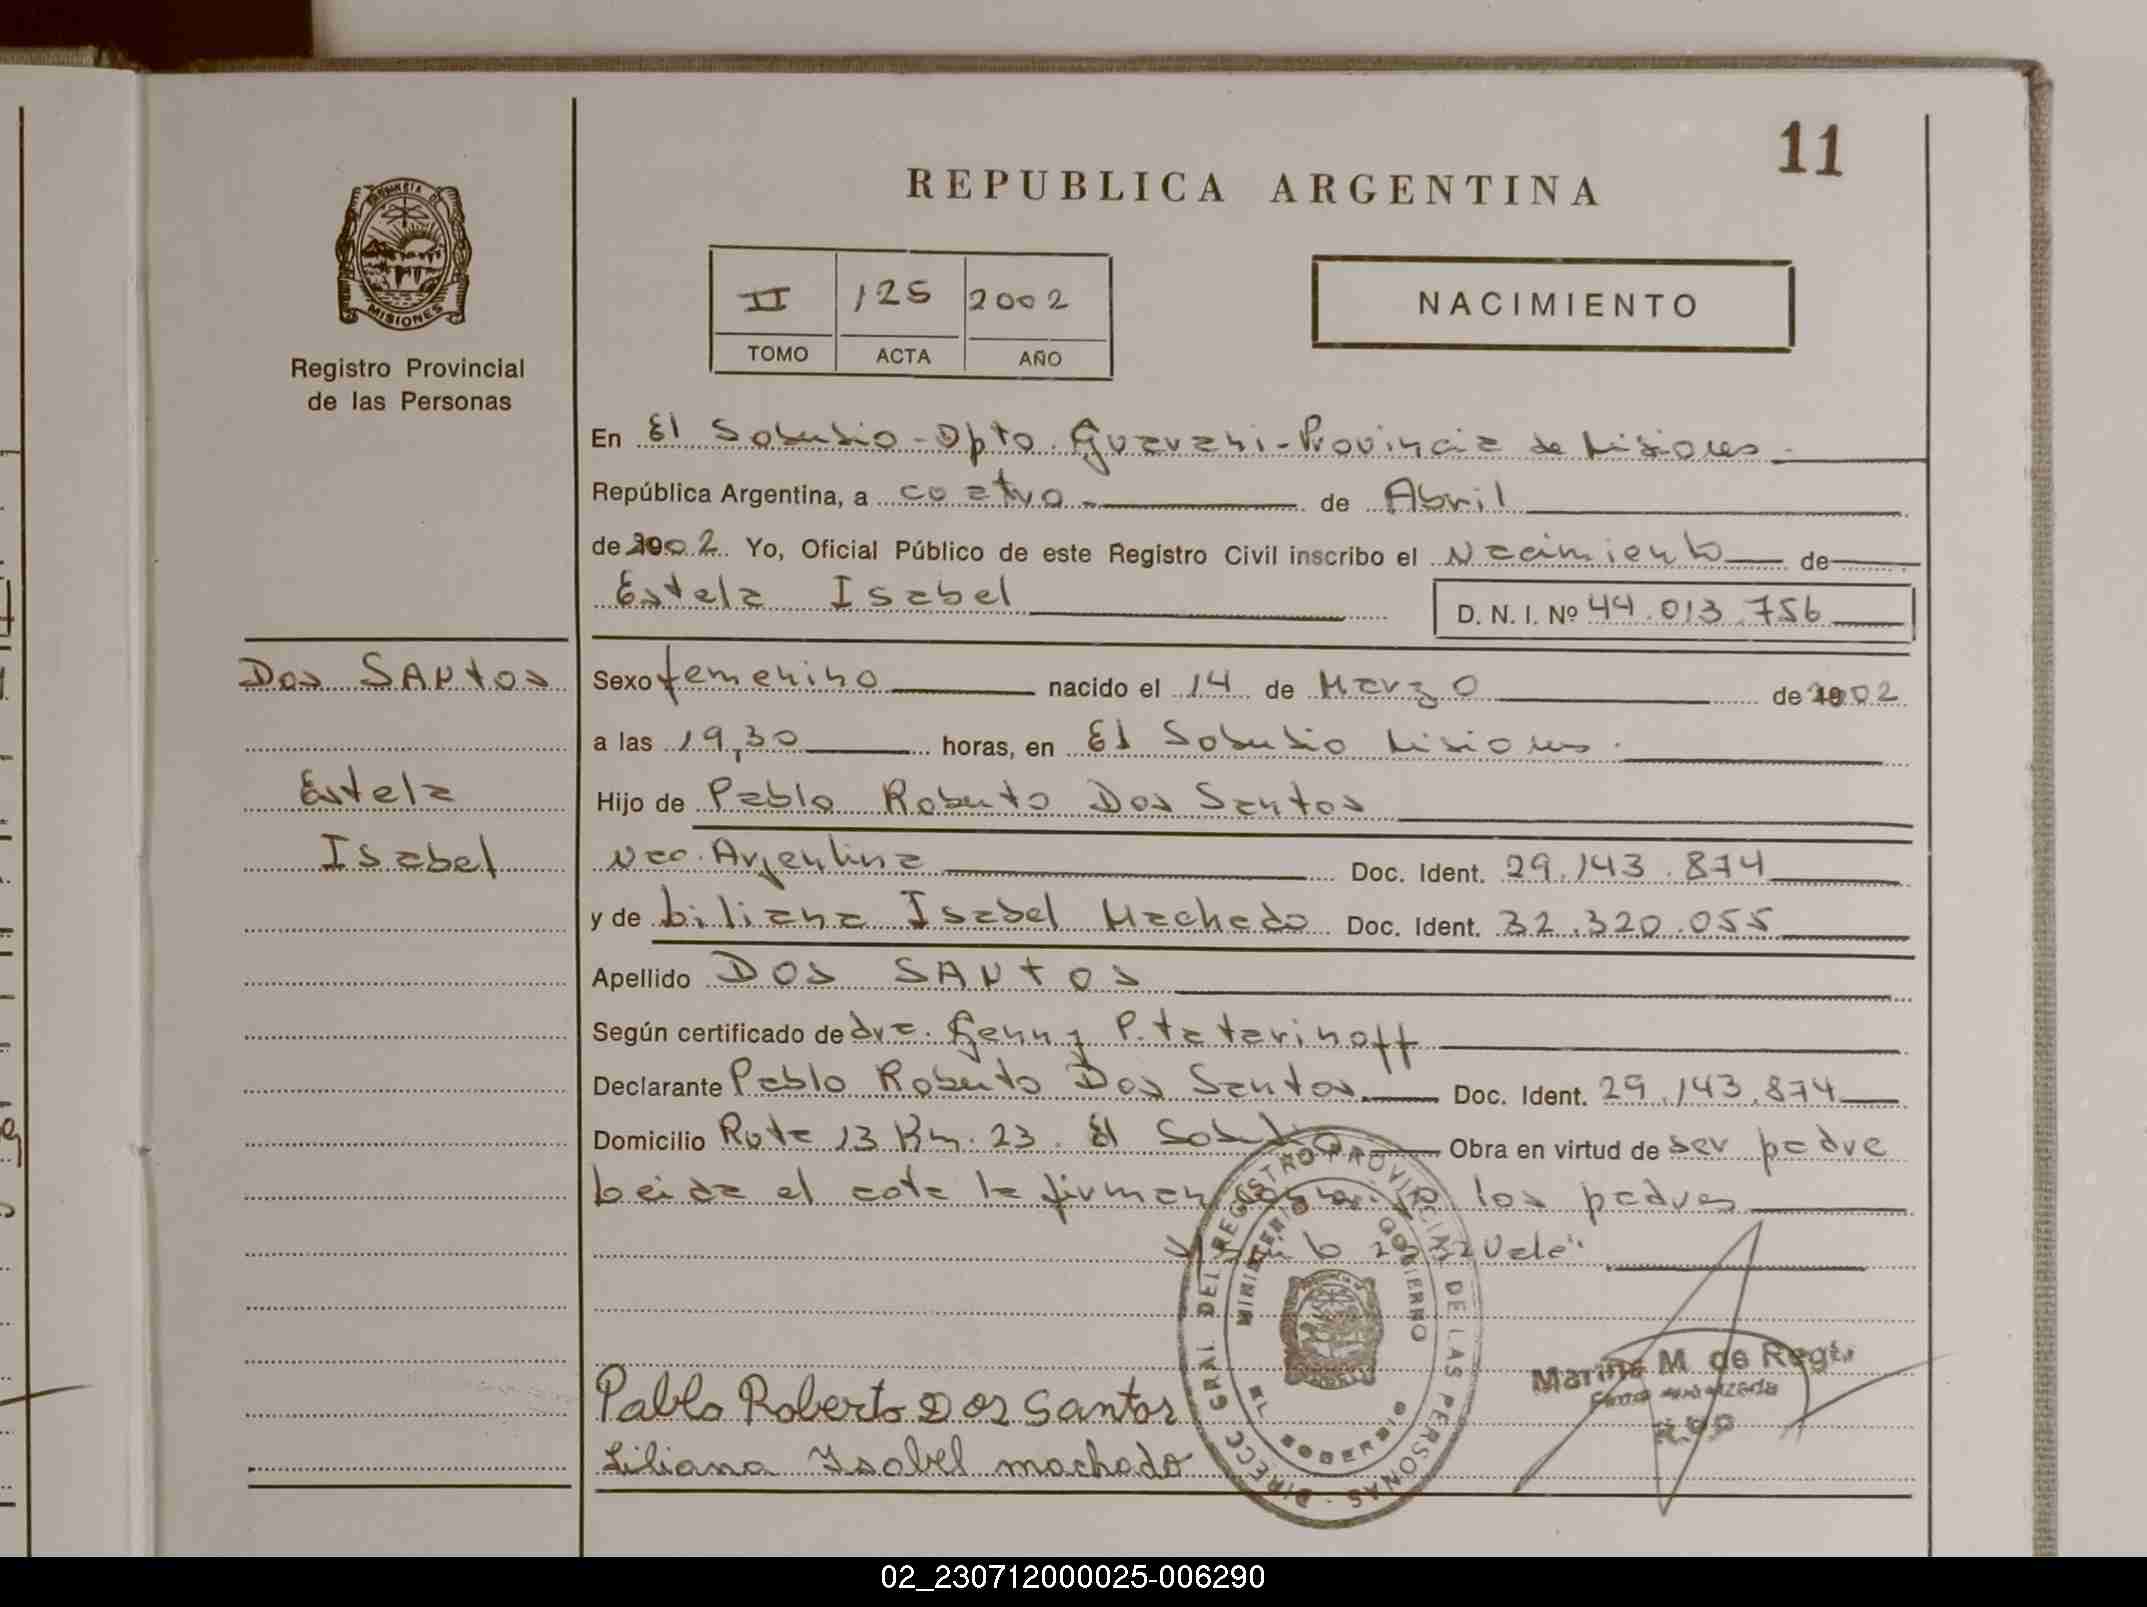 11
REPUBLICA ARGENTINA
MISIONES
Registro Provincial
de las Personas
II 125 2002
TOMO ACTA AÑO
NACIMIENTO
En El Soberbio - Dpto. Guarani - Provincia de Misiones -
República Argentina, a cuatro de Abril
de 2002 Yo, Oficial Público de este Registro Civil inscribo el Nacimiento de
Estela Isabel
D. N. I. Nº 44.013.756
Dos SANtos
Estela
Isabel
Sexo femenino nacido el 14 de Marzo de 2002
a las 19,30 horas, en El Soberbio Misiones.
Hijo de Pablo Roberto Dos Santos
Nac. Argentina Doc. Ident. 29.143.874
y de Liliana Isabel Machado Doc. Ident. 32.320.055
Apellido DOS SANtos
Según certificado de dra. Genny P. tatarinoff
Declarante Pablo Roberto Dos Santos Doc. Ident. 29.143.874
Domicilio Ruta 13 Km. 23. El Soberbio Obra en virtud de ser padre
leida el acta la firman los padres
Pablo Roberto Dos Santos
Liliana Isabel machado
DIRECC GRAL DEL REGISTRO PROVINCIAL DE LAS PERSONAS
MINISTERIO GOBIERNO
EL SOBERBIO
Marina M. de
02_230712000025-006290